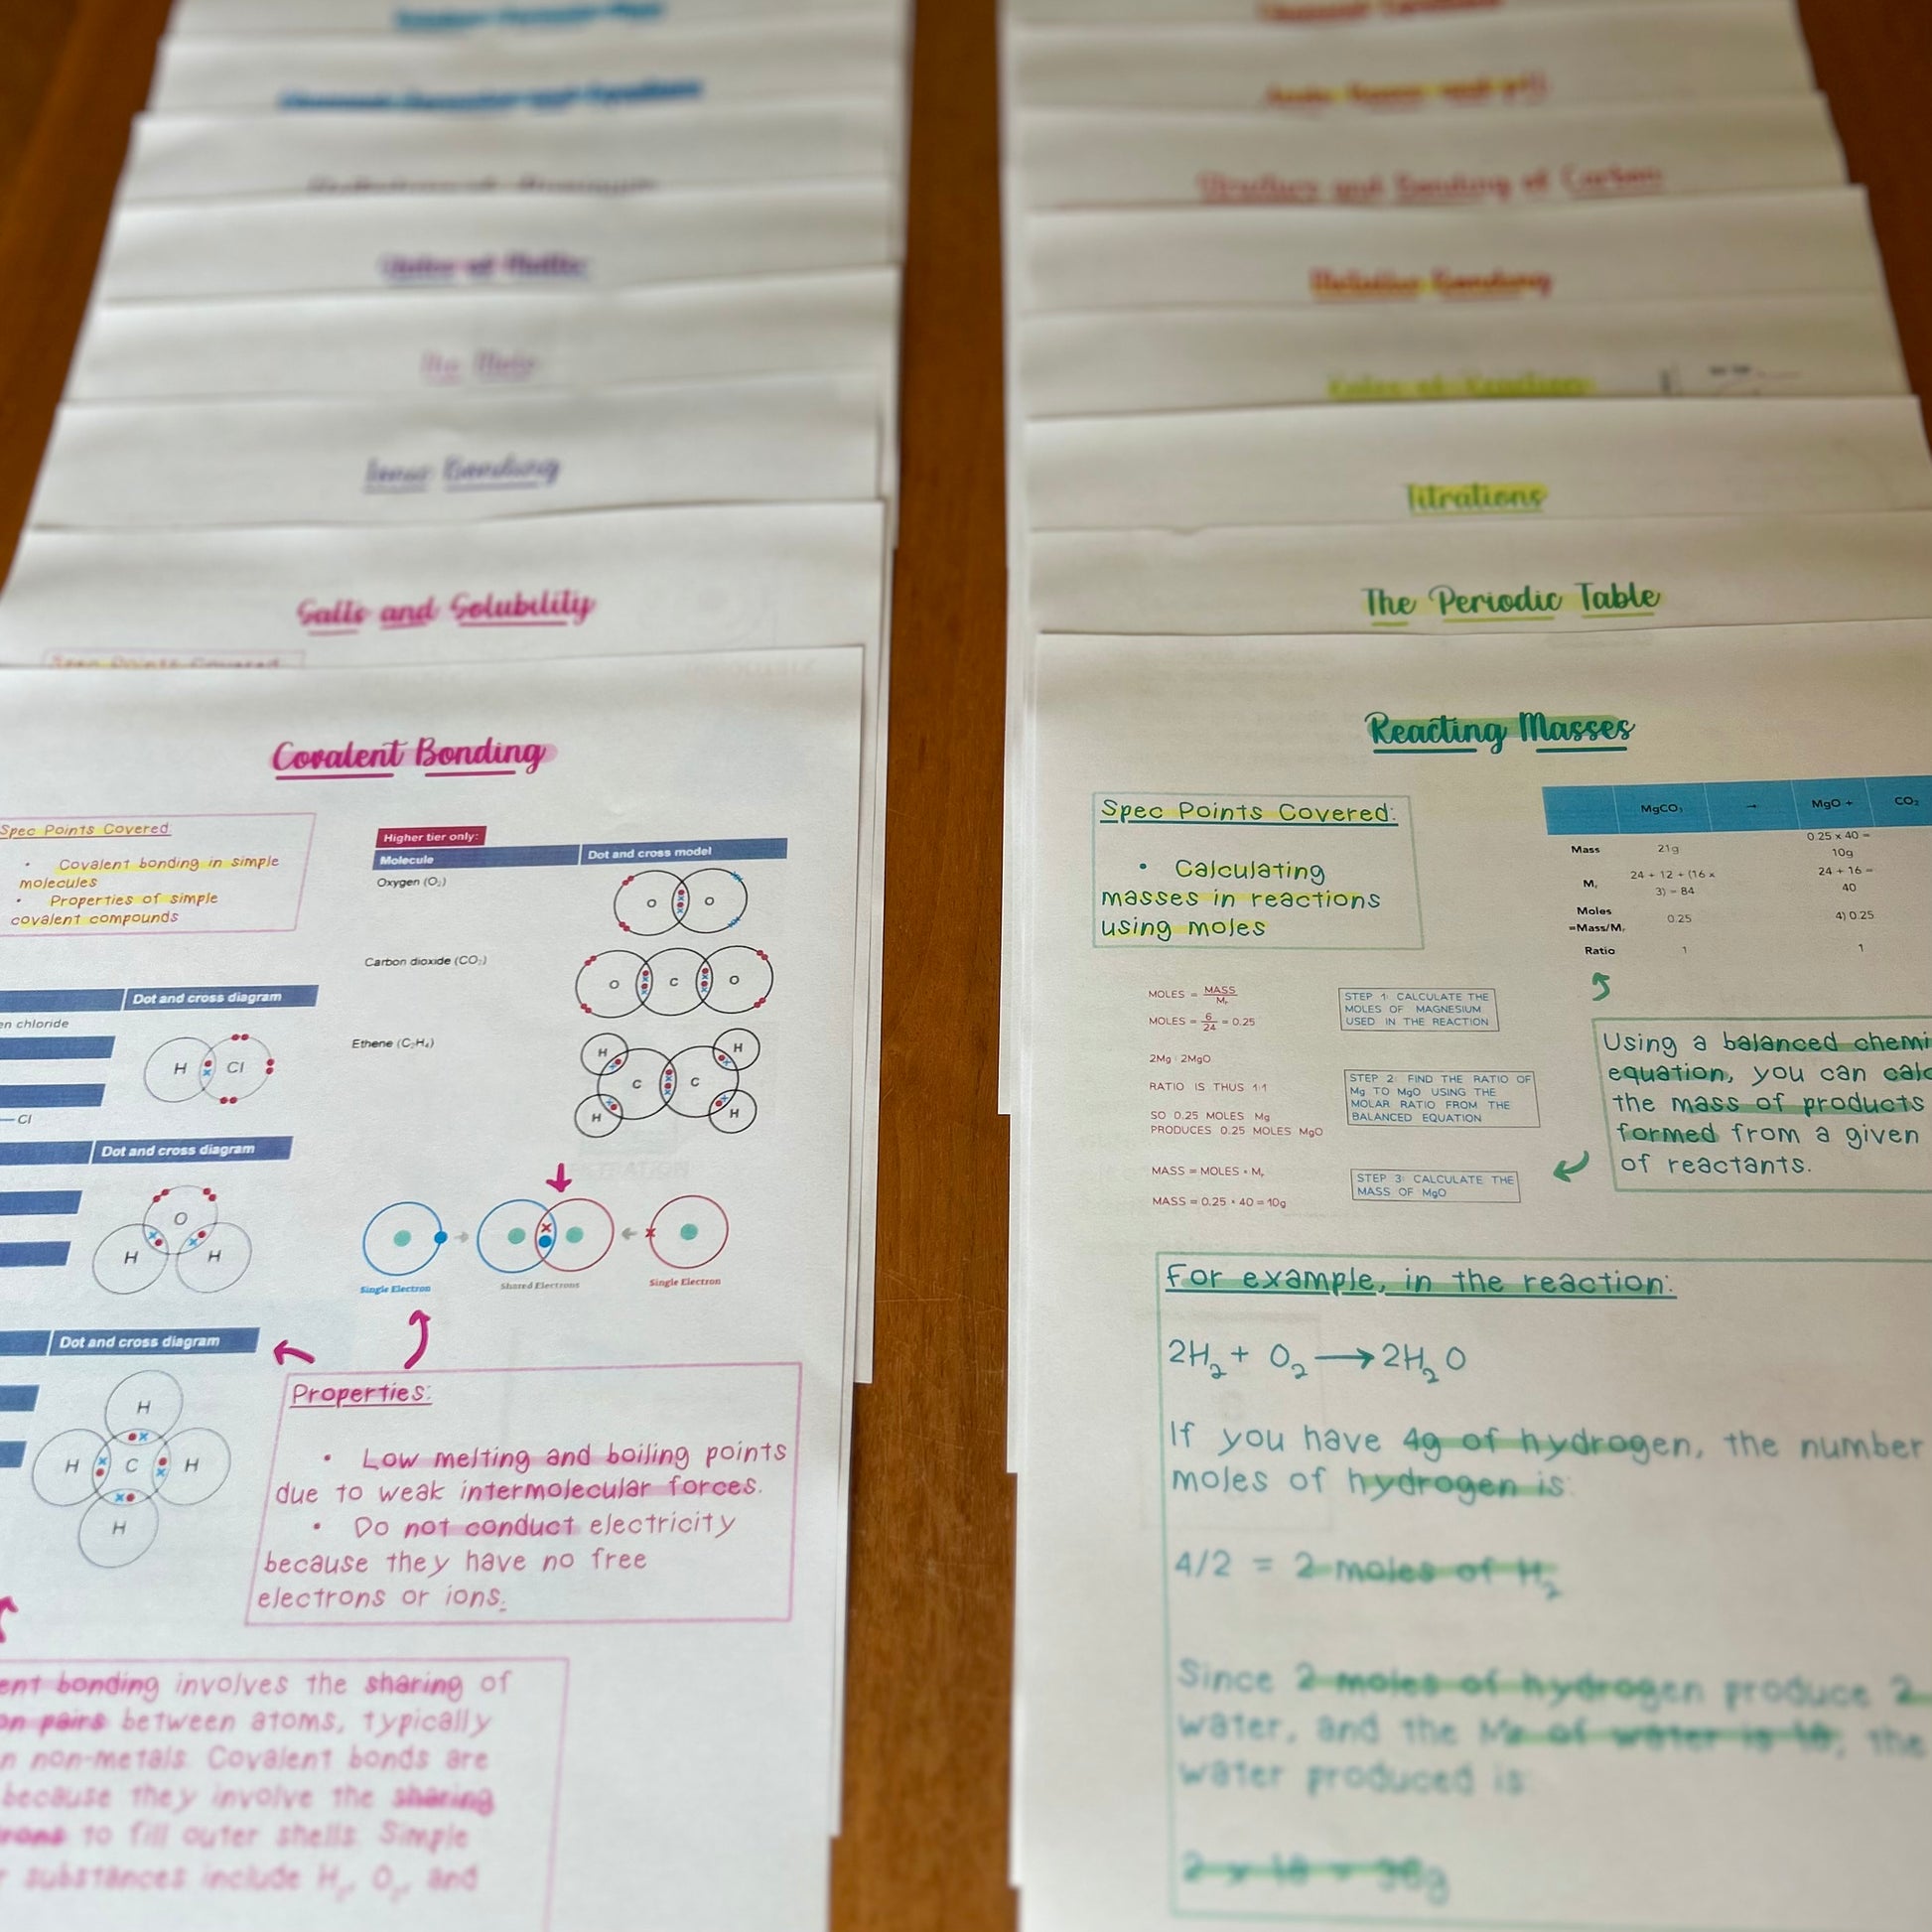 States of Matter
The Mole
Ionic Bonding
Salts and Solubility
Spec Points Covered
Covalent Bonding
Spec Points Covered:
• Covalent bonding in simple
molecules
• Properties of simple
covalent compounds
Higher tier only:
Molecule
Dot and cross model
Oxygen (O₂)
O O
Carbon dioxide (CO₂)
O C O
Ethene (C₂H₄)
H H
C C
H H
Dot and cross diagram
en chloride
H Cl
— Cl
Dot and cross diagram
O
H H
Single Electron
Shared Electrons
Single Electron
Dot and cross diagram
H
H C H
H
Properties:
• Low melting and boiling points
due to weak intermolecular forces.
• Do not conduct electricity
because they have no free
electrons or ions.
ent bonding involves the sharing of
on pairs between atoms, typically
n non-metals. Covalent bonds are
because they involve the sharing
rons to fill outer shells. Simple
r substances include H₂, O₂, and
Structure and Bonding of Carbon
Metallic Bonding
Rates of Reaction
Titrations
The Periodic Table
Reacting Masses
Spec Points Covered:
• Calculating
masses in reactions
using moles
MgCO₃ → MgO + CO₂
Mass 21g 0.25 x 40 =
10g
Mᵣ 24 + 12 + (16 x
3) = 84
24 + 16 =
40
Moles
=Mass/Mᵣ
0.25 4) 0.25
Ratio 1 1
MOLES = MASS
Mᵣ
MOLES = 6/24 = 0.25
STEP 1: CALCULATE THE
MOLES OF MAGNESIUM
USED IN THE REACTION
2Mg : 2MgO
RATIO IS THUS 1:1
SO 0.25 MOLES Mg
PRODUCES 0.25 MOLES MgO
STEP 2: FIND THE RATIO OF
Mg TO MgO USING THE
MOLAR RATIO FROM THE
BALANCED EQUATION
MASS = MOLES × Mᵣ
MASS = 0.25 × 40 = 10g
STEP 3: CALCULATE THE
MASS OF MgO
Using a balanced chemi
equation, you can calc
the mass of products
formed from a given
of reactants.
For example, in the reaction:
2H₂ + O₂ → 2H₂O
If you have 4g of hydrogen, the number
moles of hydrogen is:
4/2 = 2 moles of H₂
Since 2 moles of hydrogen produce 2
water, and the Mr of water is 18, the
water produced is:
2 x 18 = 36g